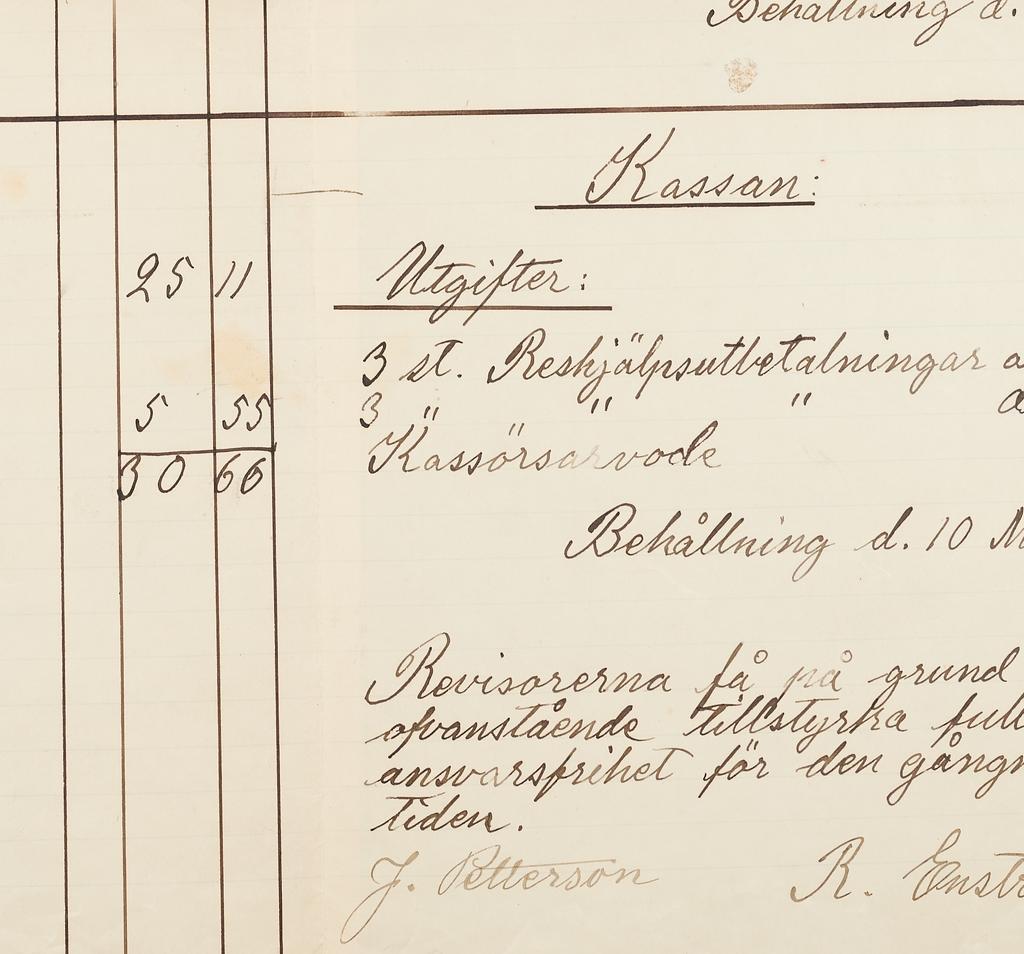 Behållning d.
Kassan:
25 11
Utgifter:
3 st. Reskjälpsutbetalningar
5 55
3 " " "
30 66
Kassörsarvode
Behållning d. 10
Revisorerna få på grund
ofvanstående tillstyrka full
ansvarsfrihet för den gångn
tiden.
J. Petterson R. Enst